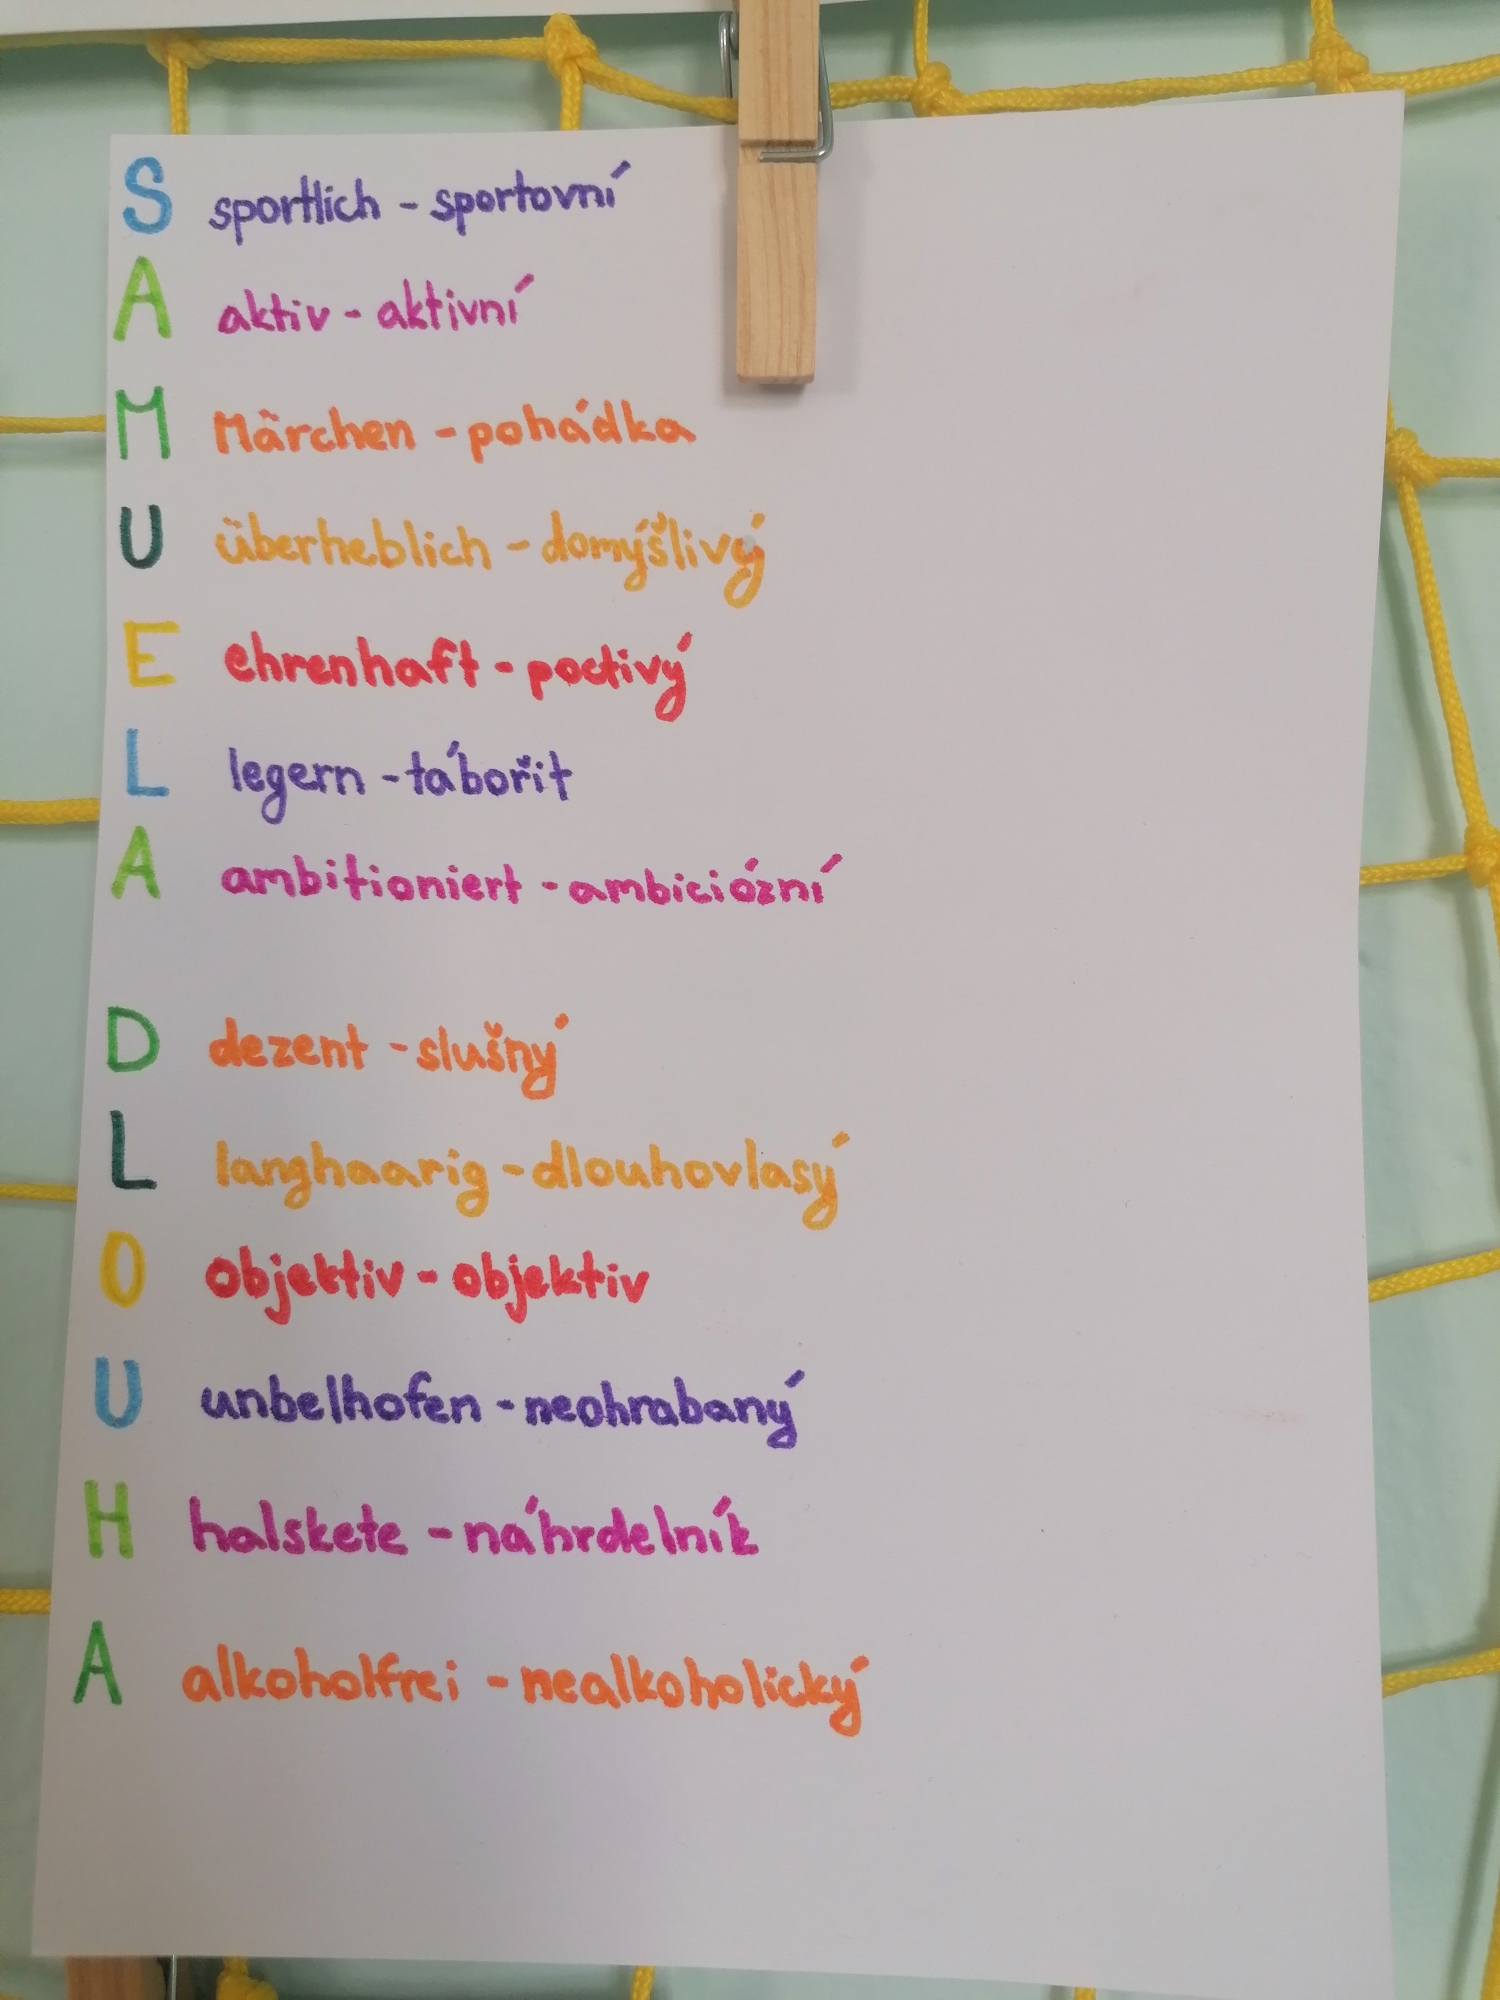 S sportlich - sportovní
A aktiv - aktivní
M Märchen - pohádka
U überheblich - domýšlivý
E ehrenhaft - poctivý
L legern - tábořit
A ambitioniert - ambiciózní
D dezent - slušný
L langhaarig - dlouhovlasý
O objektiv - objektiv
U unbelhofen - neohrabaný
H halskete - náhrdelník
A alkoholfrei - nealkoholický